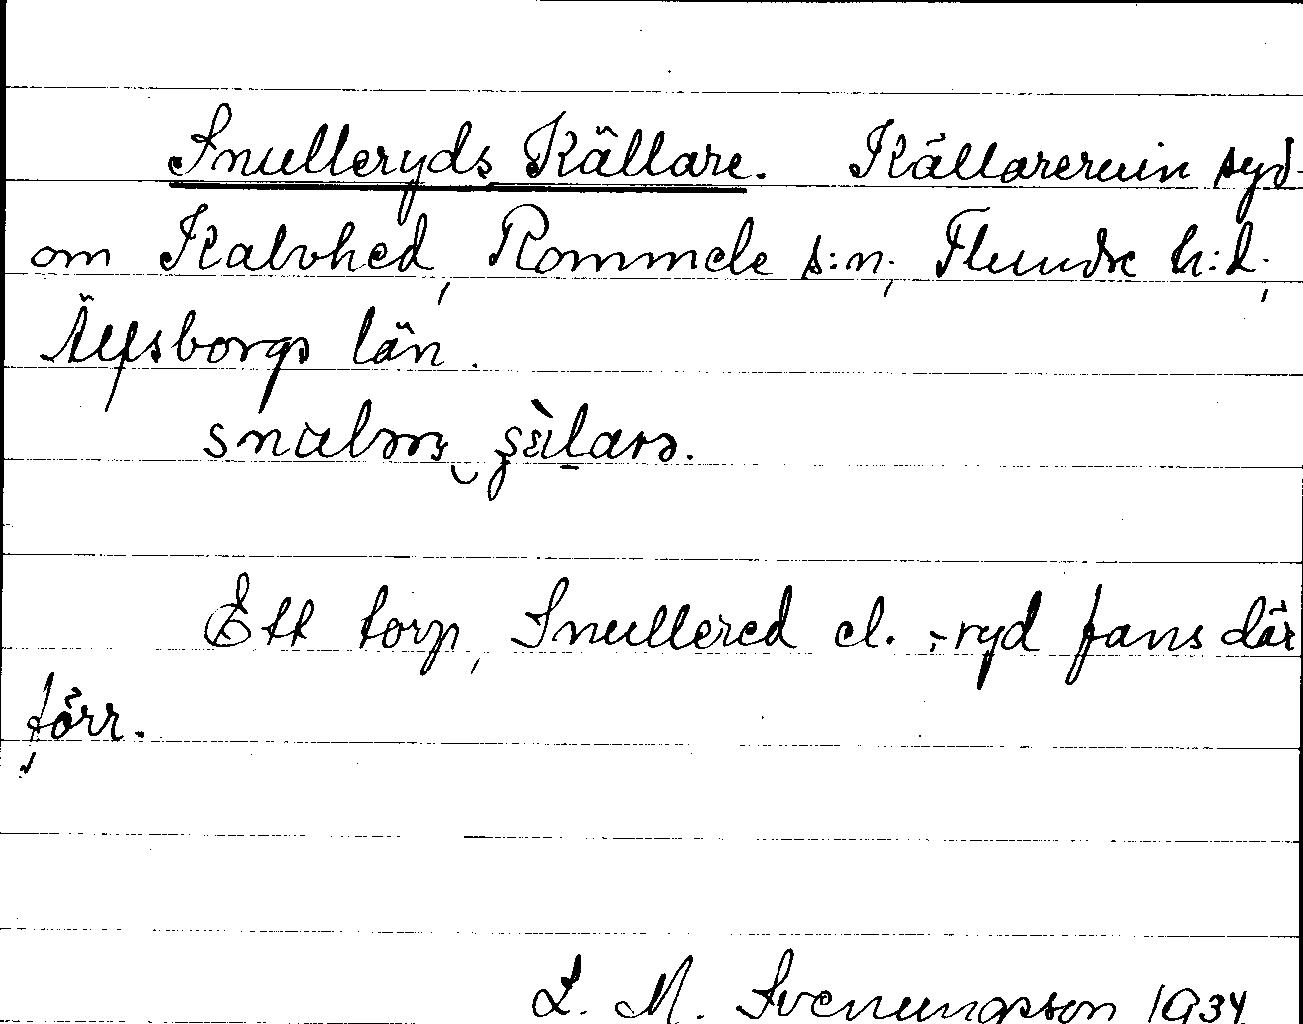 Snulleryds Källare. Källareruin syd-
om Kalvhed, Rommele s:n, Flundre h:d,
Älfsborgs län.
Ett torp, Snullered el. -ryd fans där
förr.
L. M. Svenungsson 1934